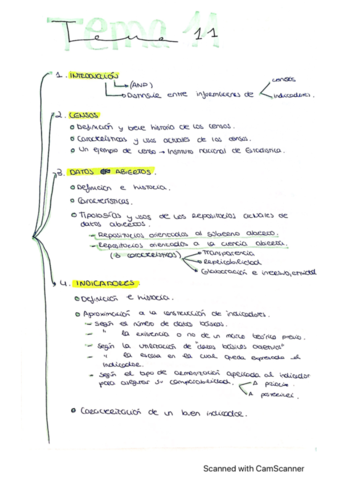 Tema 11
1. INTRODUCCIÓN
(AND)
Distinguir entre informaciones de
censos
indicadores.
2. CENSOS
Definición y breve historia de los censos.
Características y usos actuales de los censos.
Un ejemplo de censo → Instituto Nacional de Estadística.
3. DATOS ABIERTOS
Definición e historia.
Características.
Tipologías y usos de los repositorios actuales de
datos abiertos.
- Repositorios orientados al gobierno abierto.
- Repositorios orientados a la ciencia abierta.
(3 características) → Transparencia
Replicabilidad
Colaboración e
4. INDICADORES
Definición e historia.
Aproximación a la construcción de indicadores.
- Según el número de datos básicos.
- " la existencia o no de un marco teórico previo.
- Según la utilización de "datos básicos objetivos"
- " la escala en la cual queda expresado el
indicador.
- Según el tipo de aplicada al indicador
para asegurar su comparabilidad.
A priori
A posteriori.
Caracterización de un buen indicador.
Scanned with CamScanner